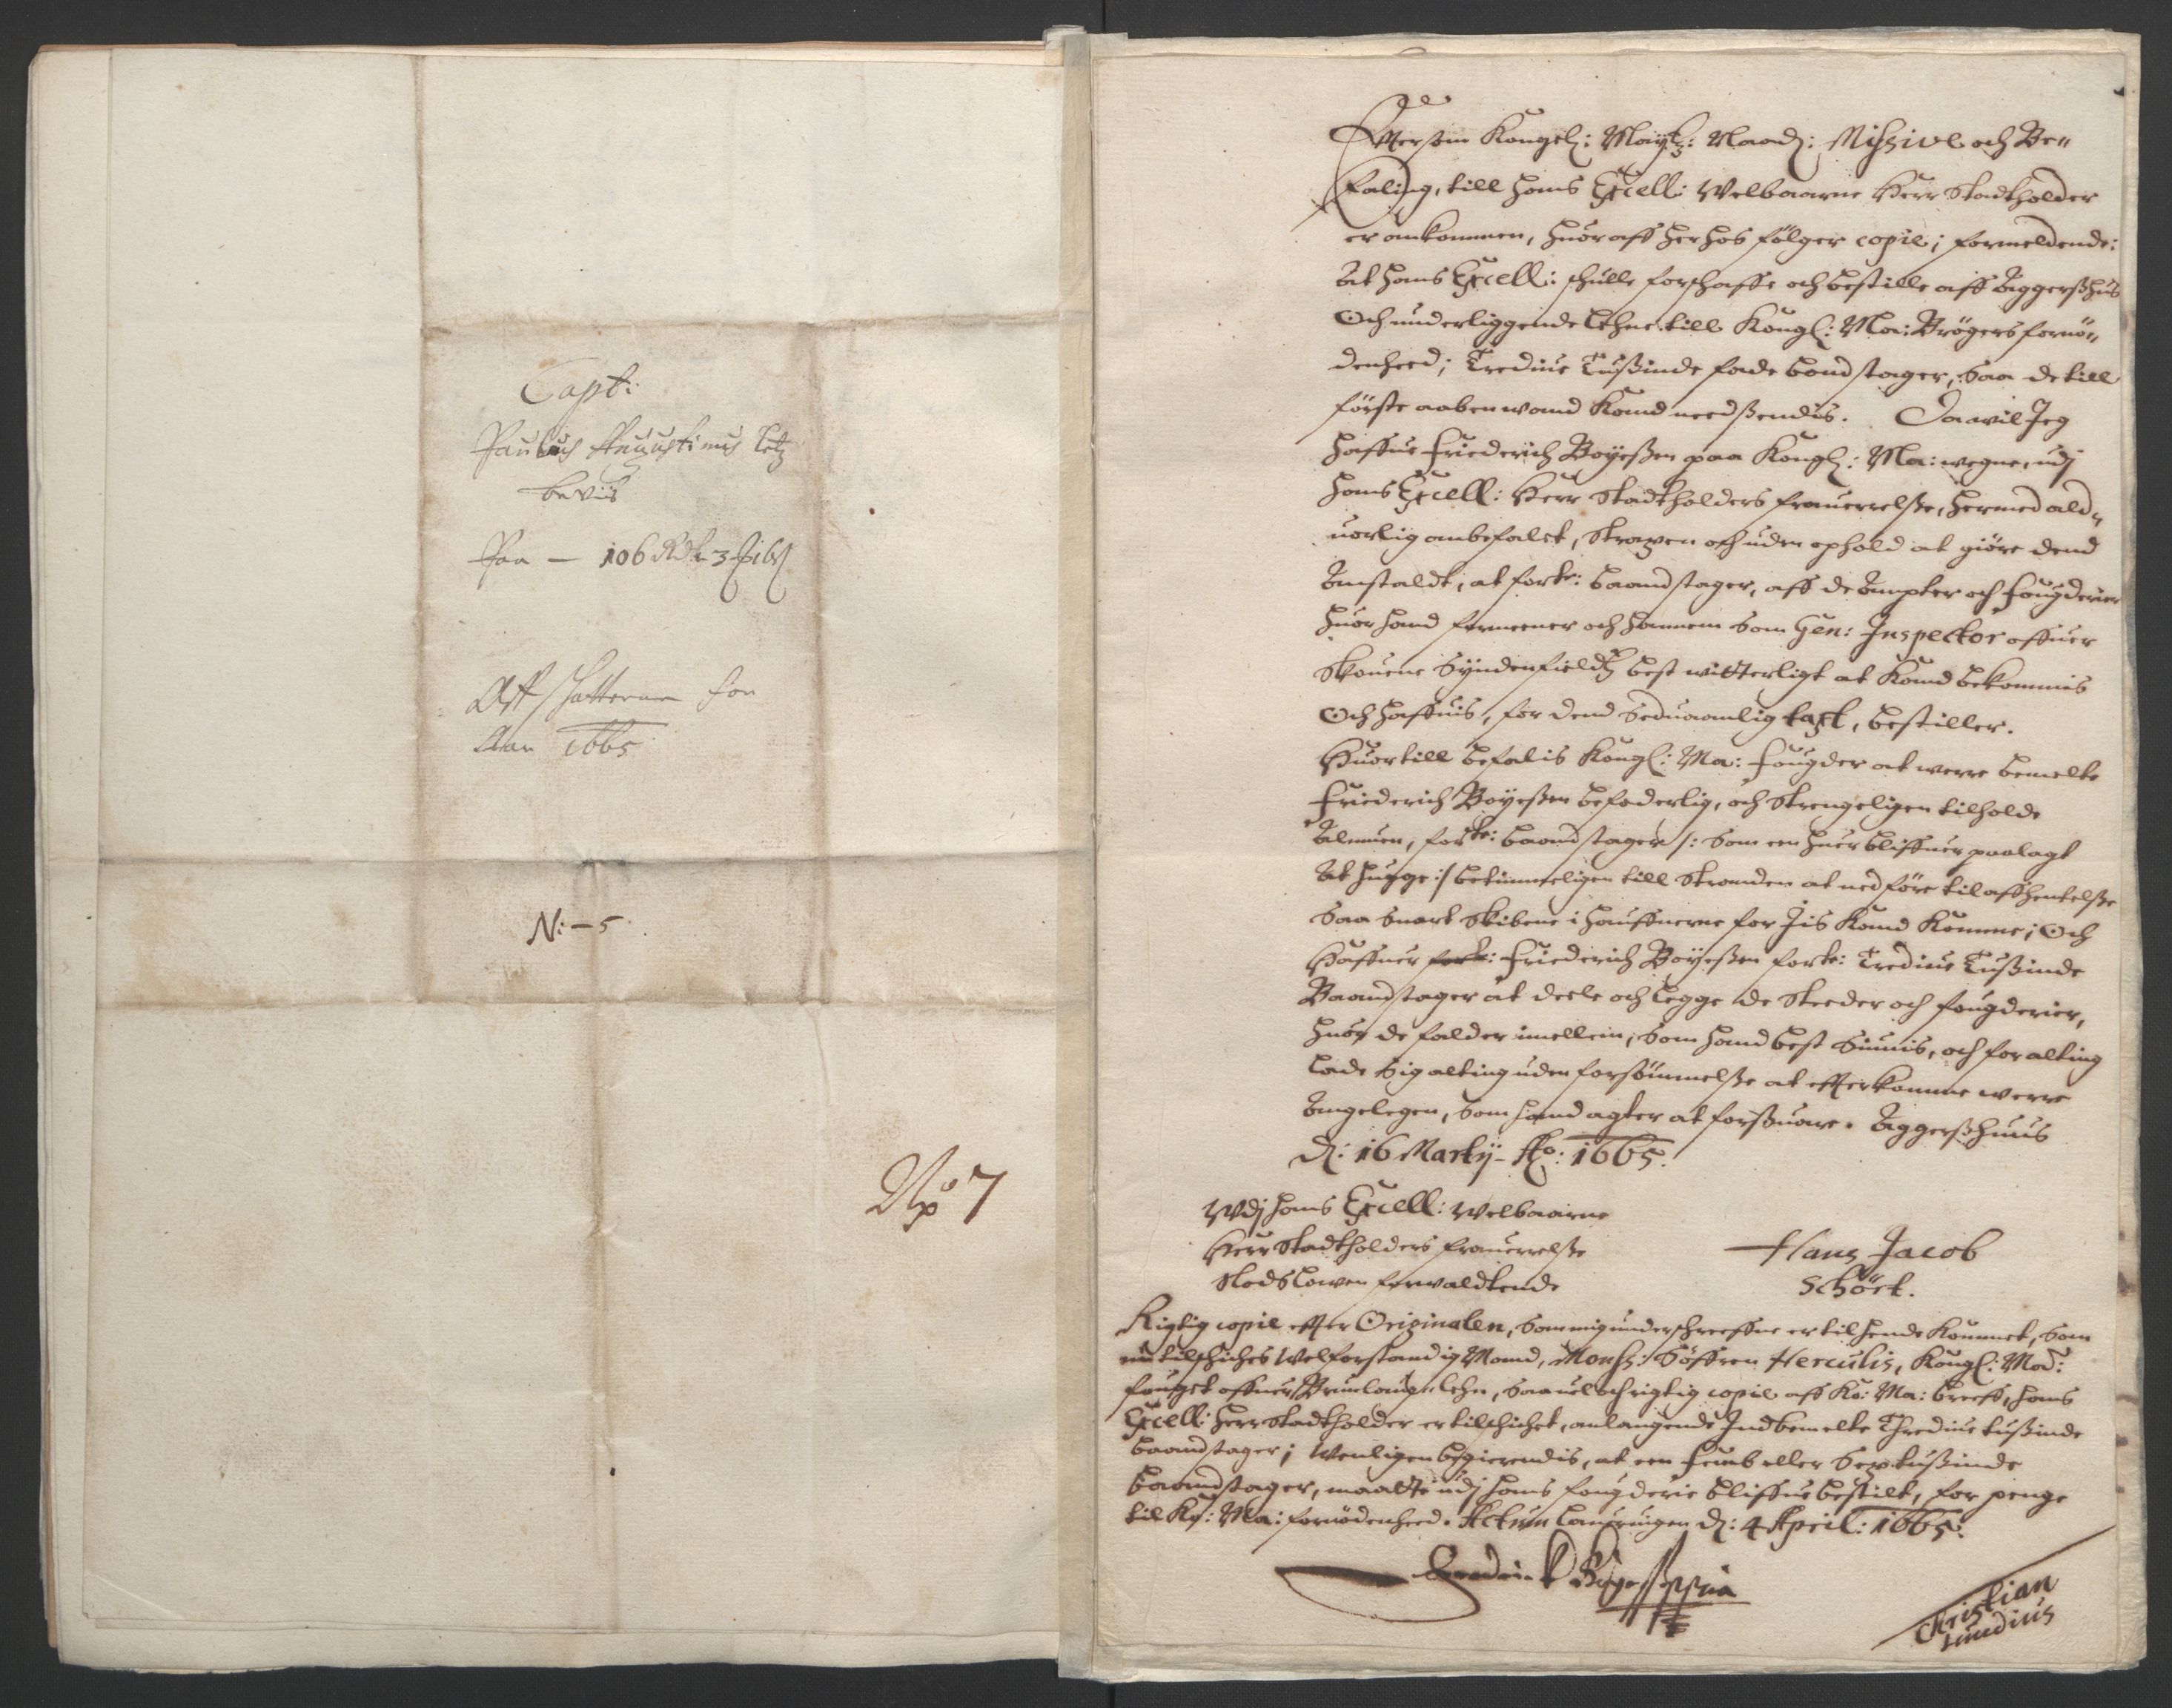 Capt:
Paulus Augustinus Letz
beviis
Paa — 106 Rdr 3 ß
Aff schatterne for
Aar 1665
N: — 5
No 7
Effter som Kongel: Mayts: Naads: Missive och Be„
faling, till hans Excell: Welbaarne Herr Stadtholder
er ankommen, huor aff her hos fölger copie; formeldende:
At hans Excell: schulle forschaffe och bestille aff Aggershus
Och underliggende Lehne till Kongl: Ma: Brögers fornö„
denheed; Tredive Tusinde fade bondstager, saa de till
förste aaben wand kand need sendis. Da wil Jeg
haffue Friederich Böyesen paa Kongl: Ma: wegne, udj
hans Excell: Herr Stadtholders frauerrelse, hermed ald„
uorlig anbefalet, straxen och uden ophold at giöre dend
Anstaldt, at forte: baandstager, aff de Ampter och Fougderier
huor hand formeener och hannem som Gen: Inspector offuer
Skouene Syndenfields best witterligt at kand bekommis
Och haffuis, for dend seduaanlig taxt, bestiller.
Huortill befalis Kongl: Ma: Fougder at werre bemelte
Friederich Böyesen befoderlig, och strengeligen tilholde
Almuen, forte: baandstager /: som en huer bliffuer paalagt
At hugge :/ betimmeligen till Stranden at nedföre til affhentelse
Saa snart Skibene i hauffnerne for Jis kand komme; Och
Haffuer forte: Friederich Böyesen forte: Tredive Tusinde
Baandstager at deele och legge de steeder och fougderier,
huor de falder imellem, som hand best siunis, och for alting
lade sig alting uden forsömmelse at effterkomme werre
Angelegen, som hand agter at forsuare. Aggershuus
D: 16 Martij Ao: 1665.
Wdj hans Excell: Welbaarne
Herr Stadtholders frauerrelse
Slodslowen forwaldtende
Hans Jacob
Schört.
Rigtig copie effter Originalen, som mig underschreffne er tilhende kommet, som
nu tilschiches Welforstandig Mand, Monsr: Söffren Herculis, Kongl: May:
fouget offuer Brunlaugs lehn, saa uel och rigtig copie aff Ko: Ma: breeff, hans
Excell: Herr Stadtholder er tilschichet, anlangende Indbemelte Thrediue tusinde
baandstager; Wenligen begierendis, at een Femb eller Sex tusinde
baandstager, maatte udj hans fougderie bliffue bestilt, for penge
til Ko: Ma: fornödenheed. Actum Laurvigen D: 4 April: 1665.
Fredrick Böyessen
Christian
Lundius